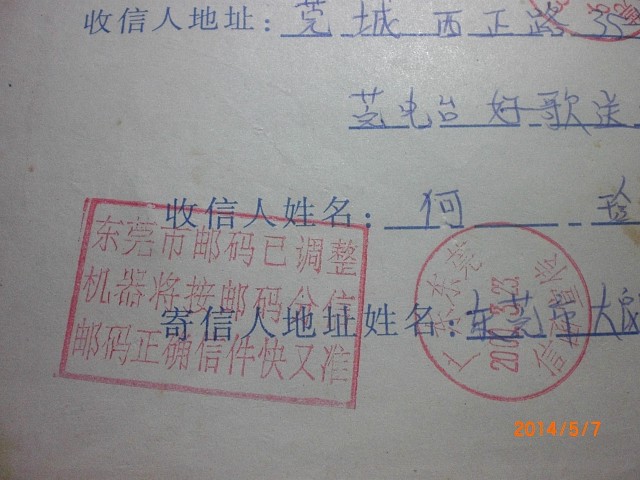 收信人地址：莞城西正路35
莞电台 好歌送
收信人姓名：何玲
东莞市邮码已调整
机器将按邮码分信
邮码正确信件快又准
寄信人地址姓名：东莞市大朗
2014/5/7